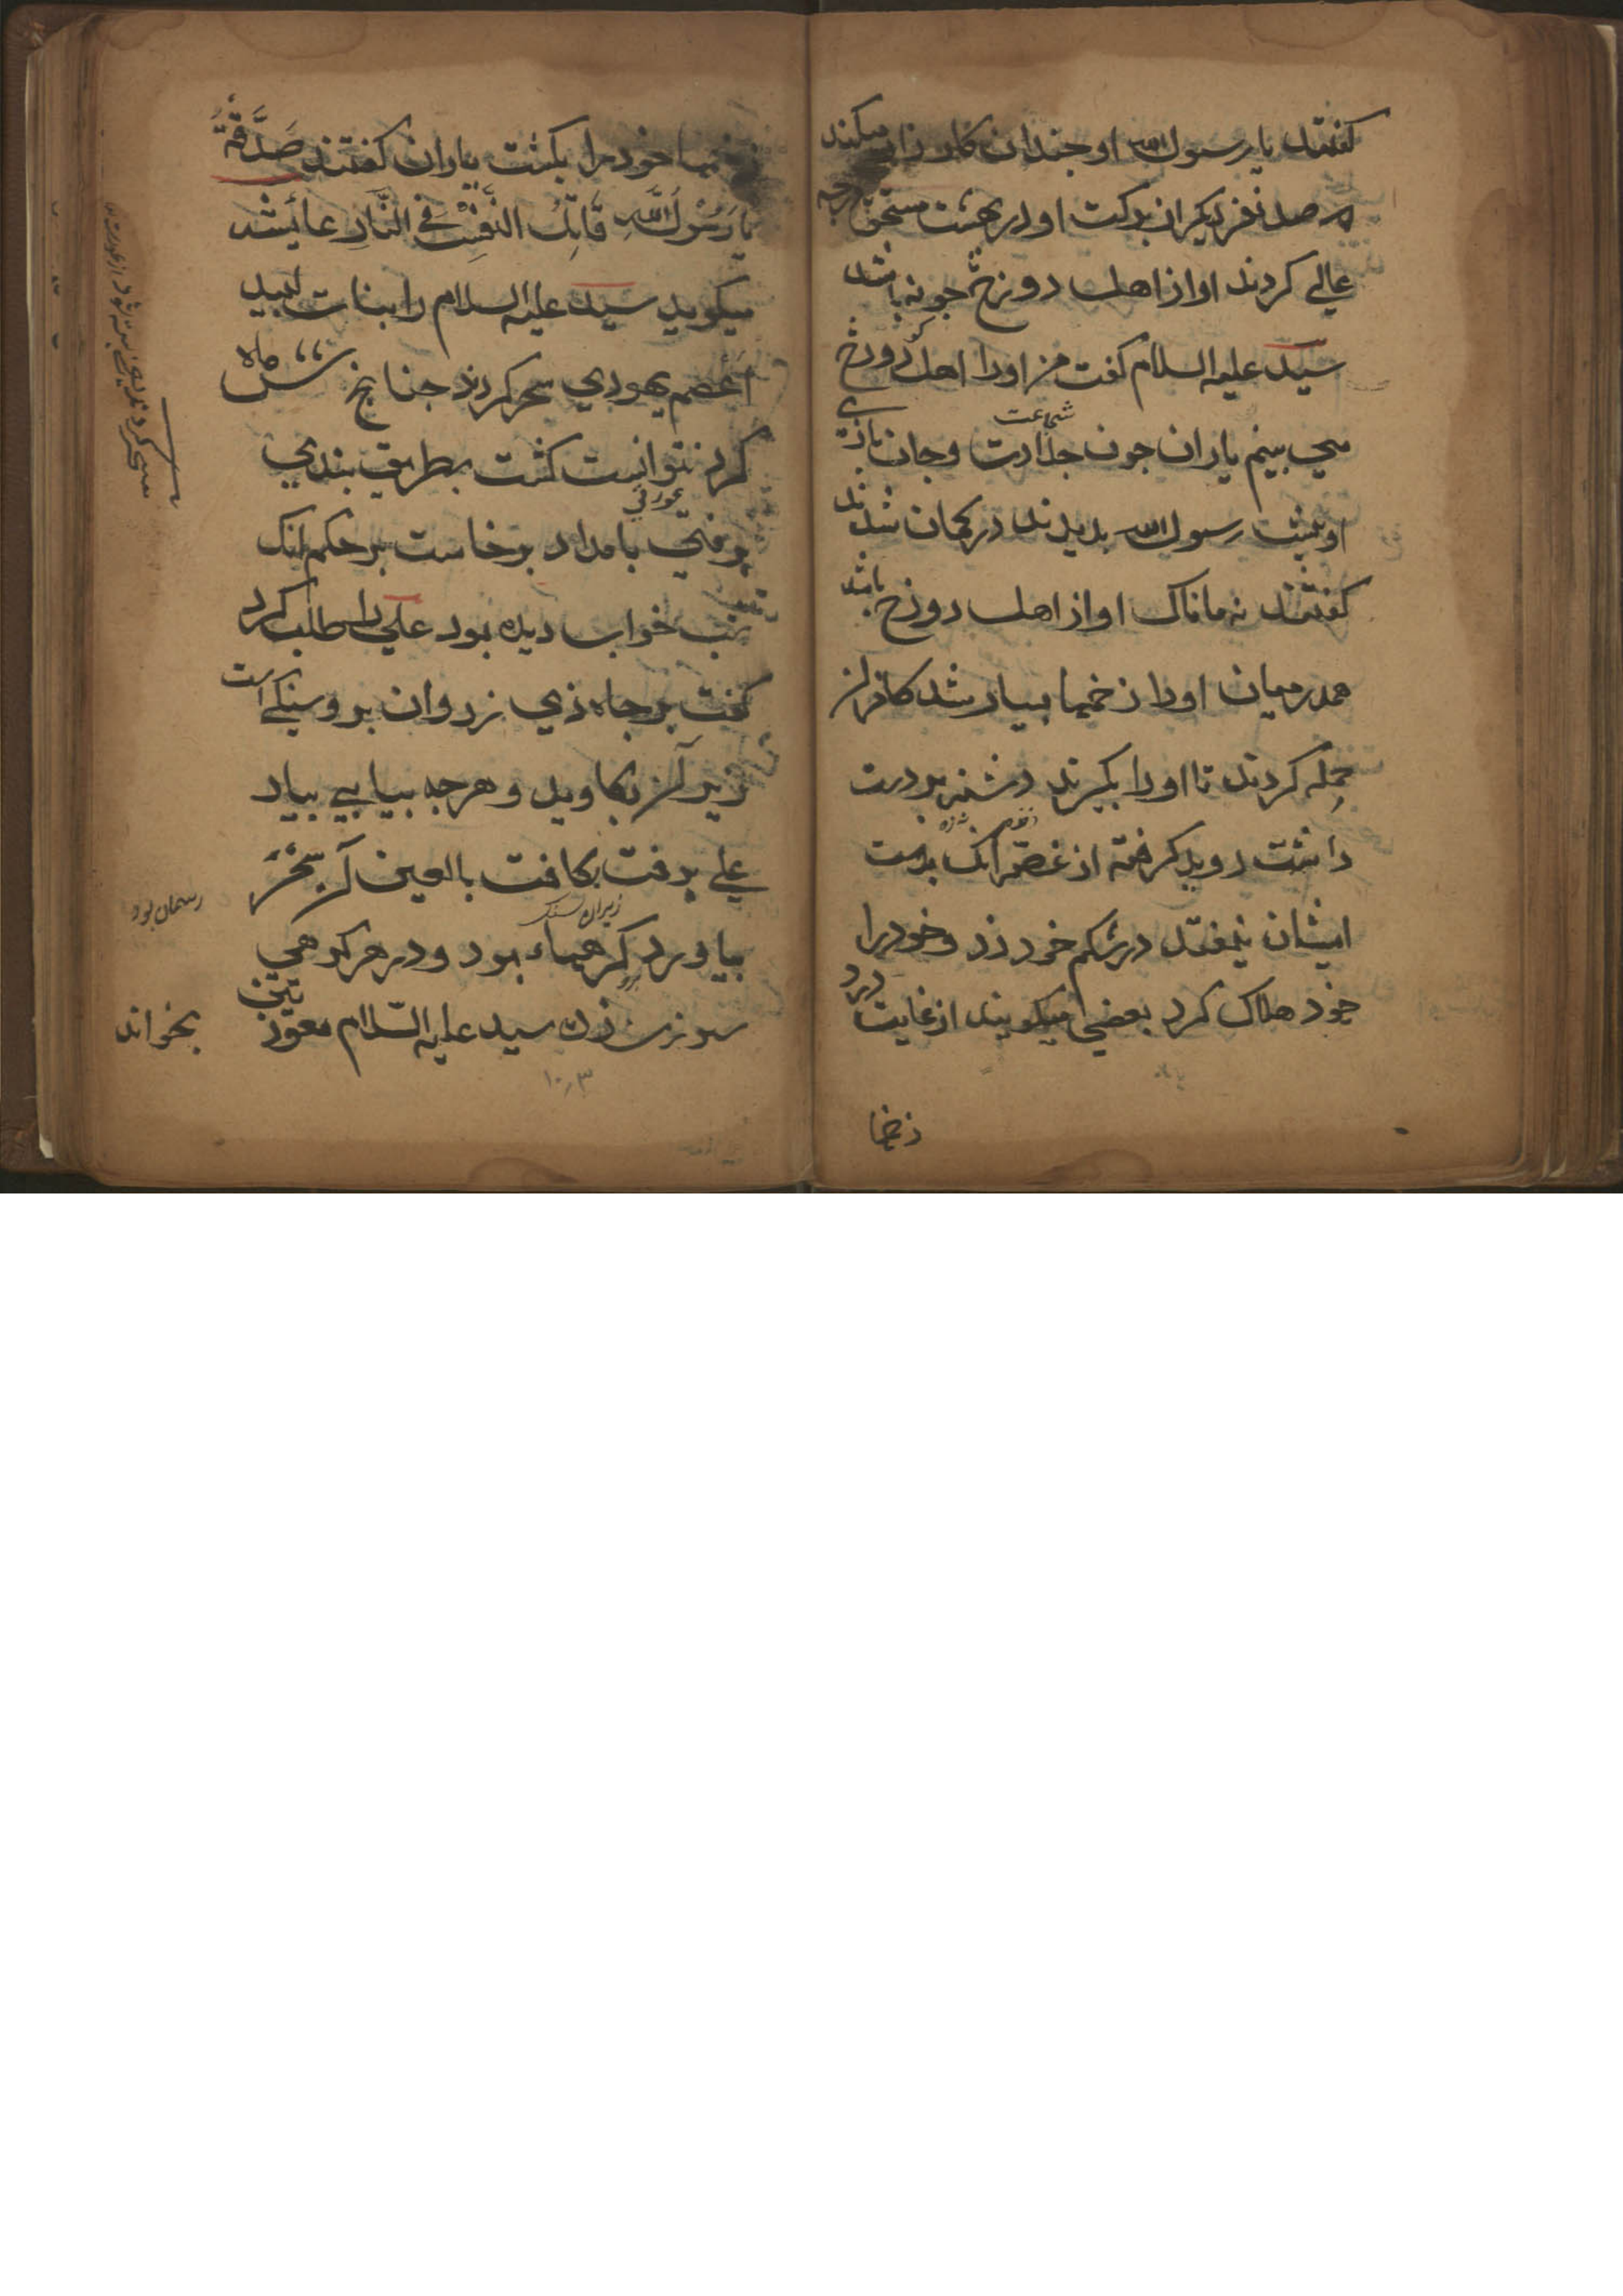 گفتند یا رسول الله او جندان کارزار میکند
صد نفر دیگر از برکت او در بهشت مستحق درجه
عالی کردند او از اهل دوزخ جونه باشد
سید علیه السلام گفت من اورا اهل دوزخ
می بینم یاران جون جلادت وجان بازی
شجاعت
او پیش رسول الله بدیدند در کمان شدند
گفتند نه مانا ک او از اهل دوزخ باشد
همدرمیان اورا زخمها بسیار شد کافران
حمله کردند تا اورا بکیرند دشنه بر دست
داشت دوید کرفته از غصه آنک بدست
ایشان نیفتد در شکم خود زد و خودرا
خود هلاک کرد بعضی میکویند از غایت درد
زخمها
زخمها خودرا بکشت یاران گفتند صَدَّقَهُ
یا رَسُولَ اللهِ قَاتِلُ النَّفْسِ فِي النَّارِ عایشه
میکوید سید علیه السلام را بنات لبید
اعصم یهودی سحر کردند جنانج شش ماه
کرد نتوانست کشت بطریق بندی
عورتی
برفتی بامداد برخاست بر حکم آنک
شب خواب دیده بود علی را طلب کرد
گفت بر جاه ذی زروان برو سنکی است
زیر آن بکاوید و هرجه بیابی بیار
علی برفت بکافت بالعین آن سحر
زیران سنک
بیاورد کرهها بود و در هر کرهی
سوزن زده سید علیه السلام معوذتین
بخواند
ریسمان بود
۱۰۳